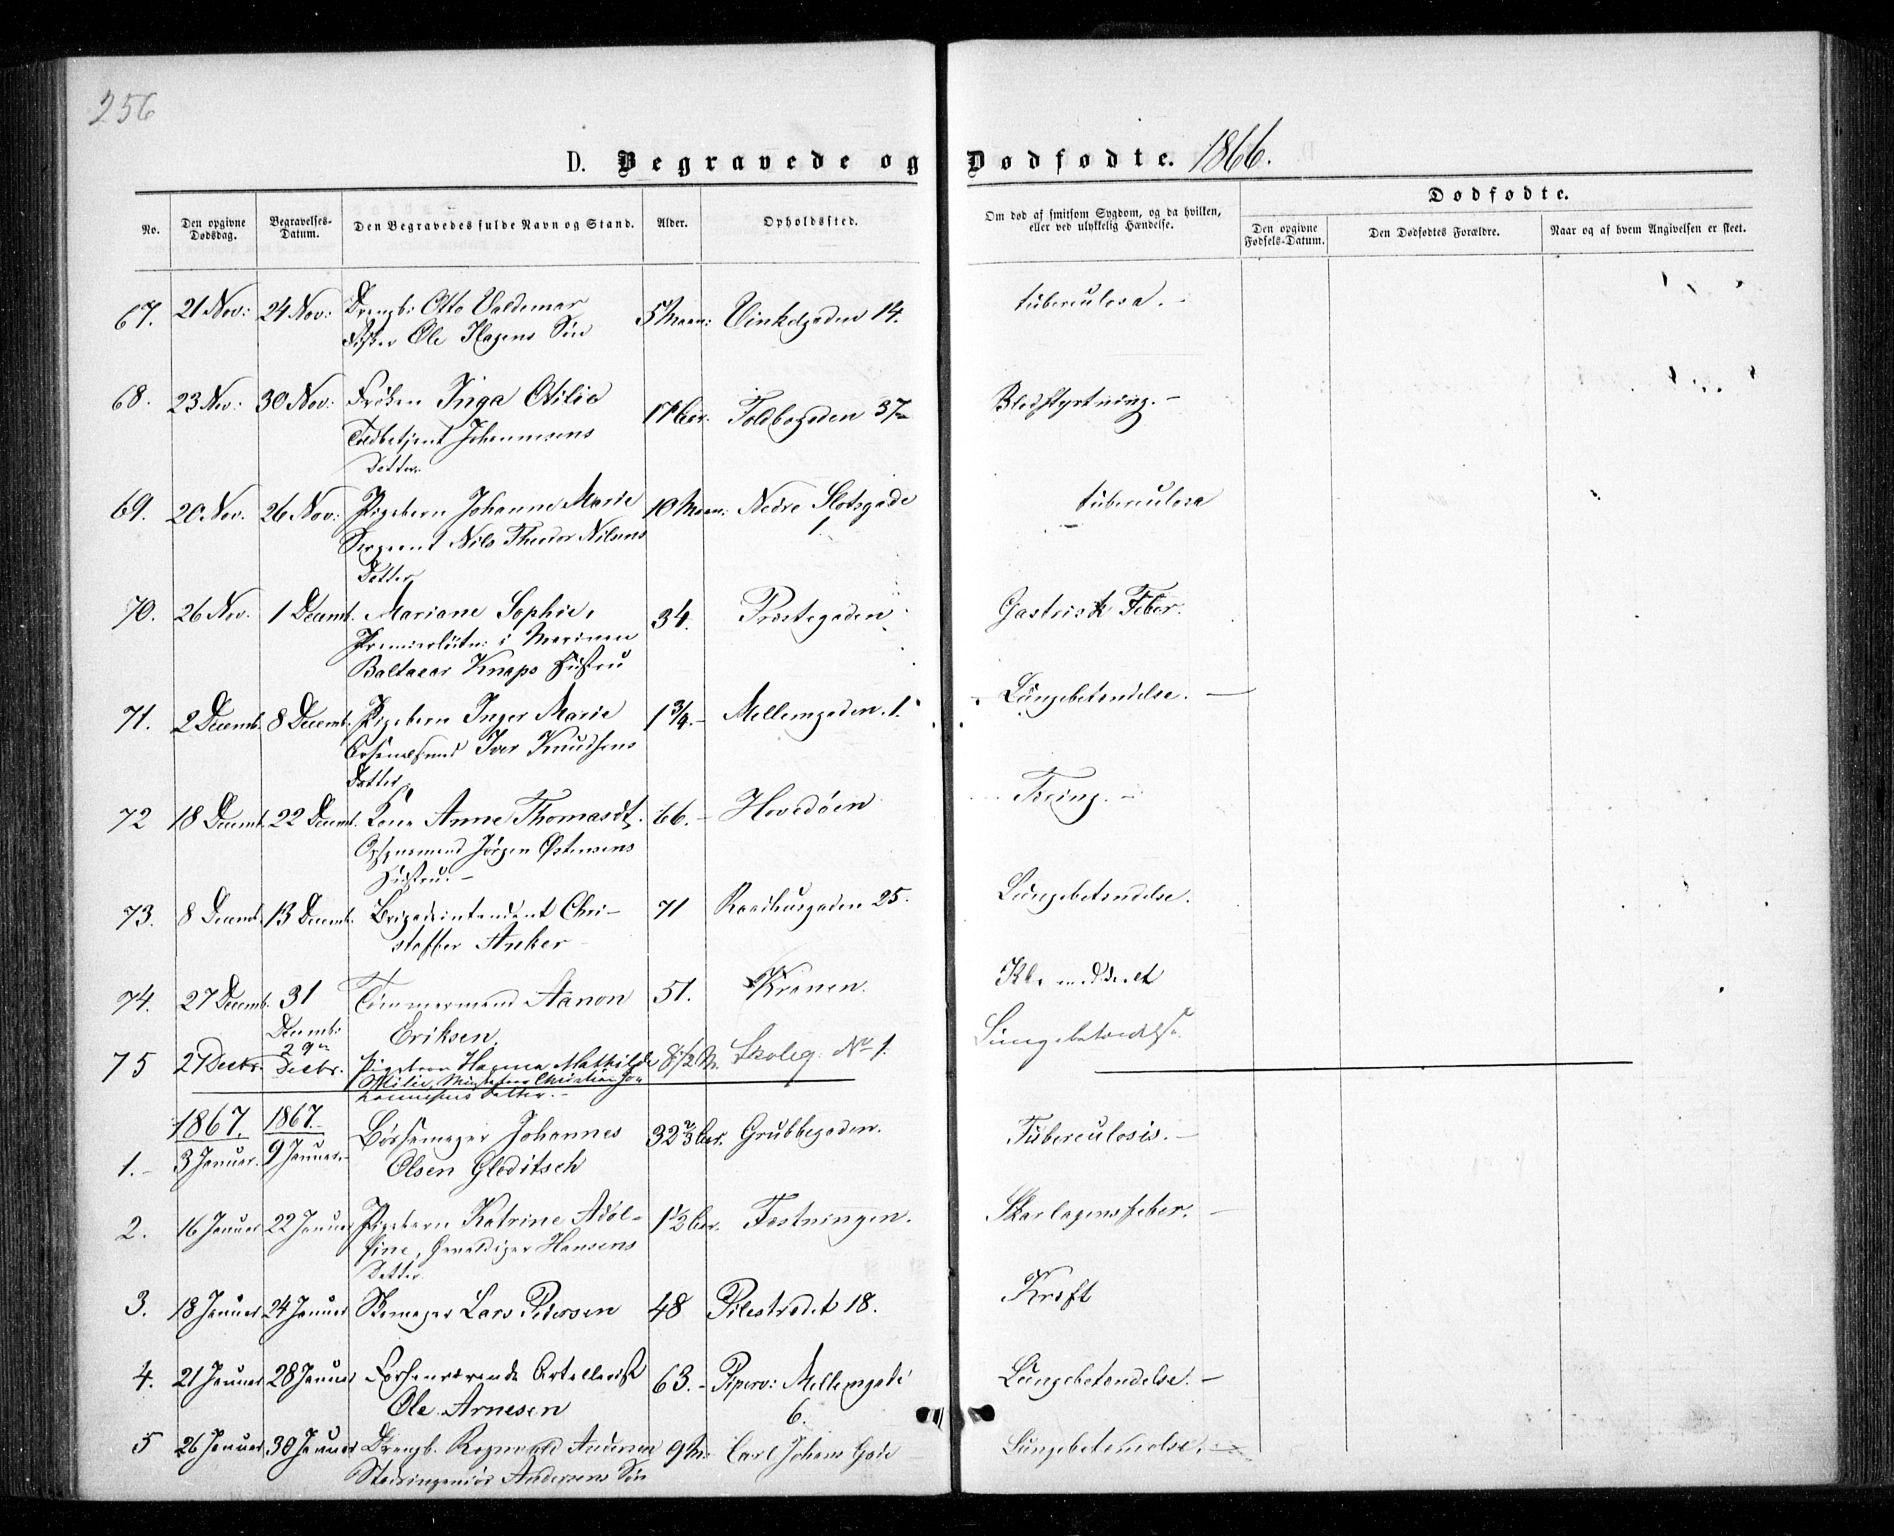 256
D. Begravede og Dødfødte. 1866.
Dødfødte.
No. Den opgivne Dødsdag. Begravelses-Datum. Den Begravedes fulde Navn og Stand. Alder. Opholdssted. Om død af smitsom Sygdom, og da hvilken, eller ved ulykkelig Hændelse. Den opgivne Fødsels-Datum. Den Dødfødtes Forældre. Naar og af hvem Angivelsen er skeet.
67. 21 Nov: 24 Nov: Drengb: Otto Valdemar 5 Maan: Vinkelgaden 14. tuberculosa. -
Ole Hagens Søn
68. 23 Nov: 30 Nov: Frøken Inga Otilie 17 Aar. Toldbogaden 37 Blodstyrtning. -
Toldbetjent Johannesens
Datter.
69. 20 Nov. 26 Nov: Pigebarn Johanne Marie 10 Maan: Nedre Slotsgade 1. tuberculosa
Sergeant Nils Theodor Nilsens
Datter
70. 26 Nov. 1 Decemb. Mariane Sophie, 34. Præstegaden Gastrisk Feber.
Premierløitn: i Marinen
Baltazar Knaps Hustru
71. 2 Decemb. 8 Decemb. Pigebarn Inger Marie 1 3/4. - Mellemgaden. 1. Lungebetændelse. -
Arsenalsmd Iver Knudsens
Datter
72 18 Decemb. 22 Decemb. Kone Anne Thomasdt. 66. - Hovedøen Tæring. -
Opsynsmand Jørgen Østensens
Hustru. -
73. 8 Decemb. 13 Decemb. Brigadeintendant Chri-
stoffer Anker 71 Raadhusgaden 25. Lungebetændelse.
74. 27 Decemb. 31 Decemb: Tømmermand Aanon 51. Kranen.
Eriksen.
75 27 Decbr. 29de Decbr. Pigebarn Hanna Mathilde 8 1/2 M. Skoleg. No 1. Lungebetændelse
Milie, Christian Jo-
hannesens Datter. -
1867. 1867.
1. - 3 Januar. 9 Januar. Børsemager Johannes 32 2/3 Aar. Grubbegaden. Tuberculosis. -
Olsen Gleditsch
2. 16 Januar 22 Januar Pigebarn Katrine Adol-
fine, Gevaldiger Hansens 1 1/2 Aar. Fæstningen. Skarlagensfeber. -
Datter.
3. 18 Januar 24 Januar Skomager Lars Pedersen 48 Pilestrædet 18. Kræft
4. 21 Januar 28 Januar Forhenværende Artillerist 63. - Piperv: Mellemgade 6. Lungebetændelse. -
Ole Arnesen
5 26 Januar 30 Januar Drengb. Ragnvald Andersen 9 M. Carl Johans Gade Lungebetændelse. -
Stadsingeniør Andersens Søn